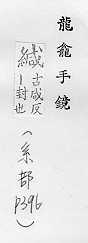 龍龕手鏡
緘古咸反
丨封也
(糸部
p396)